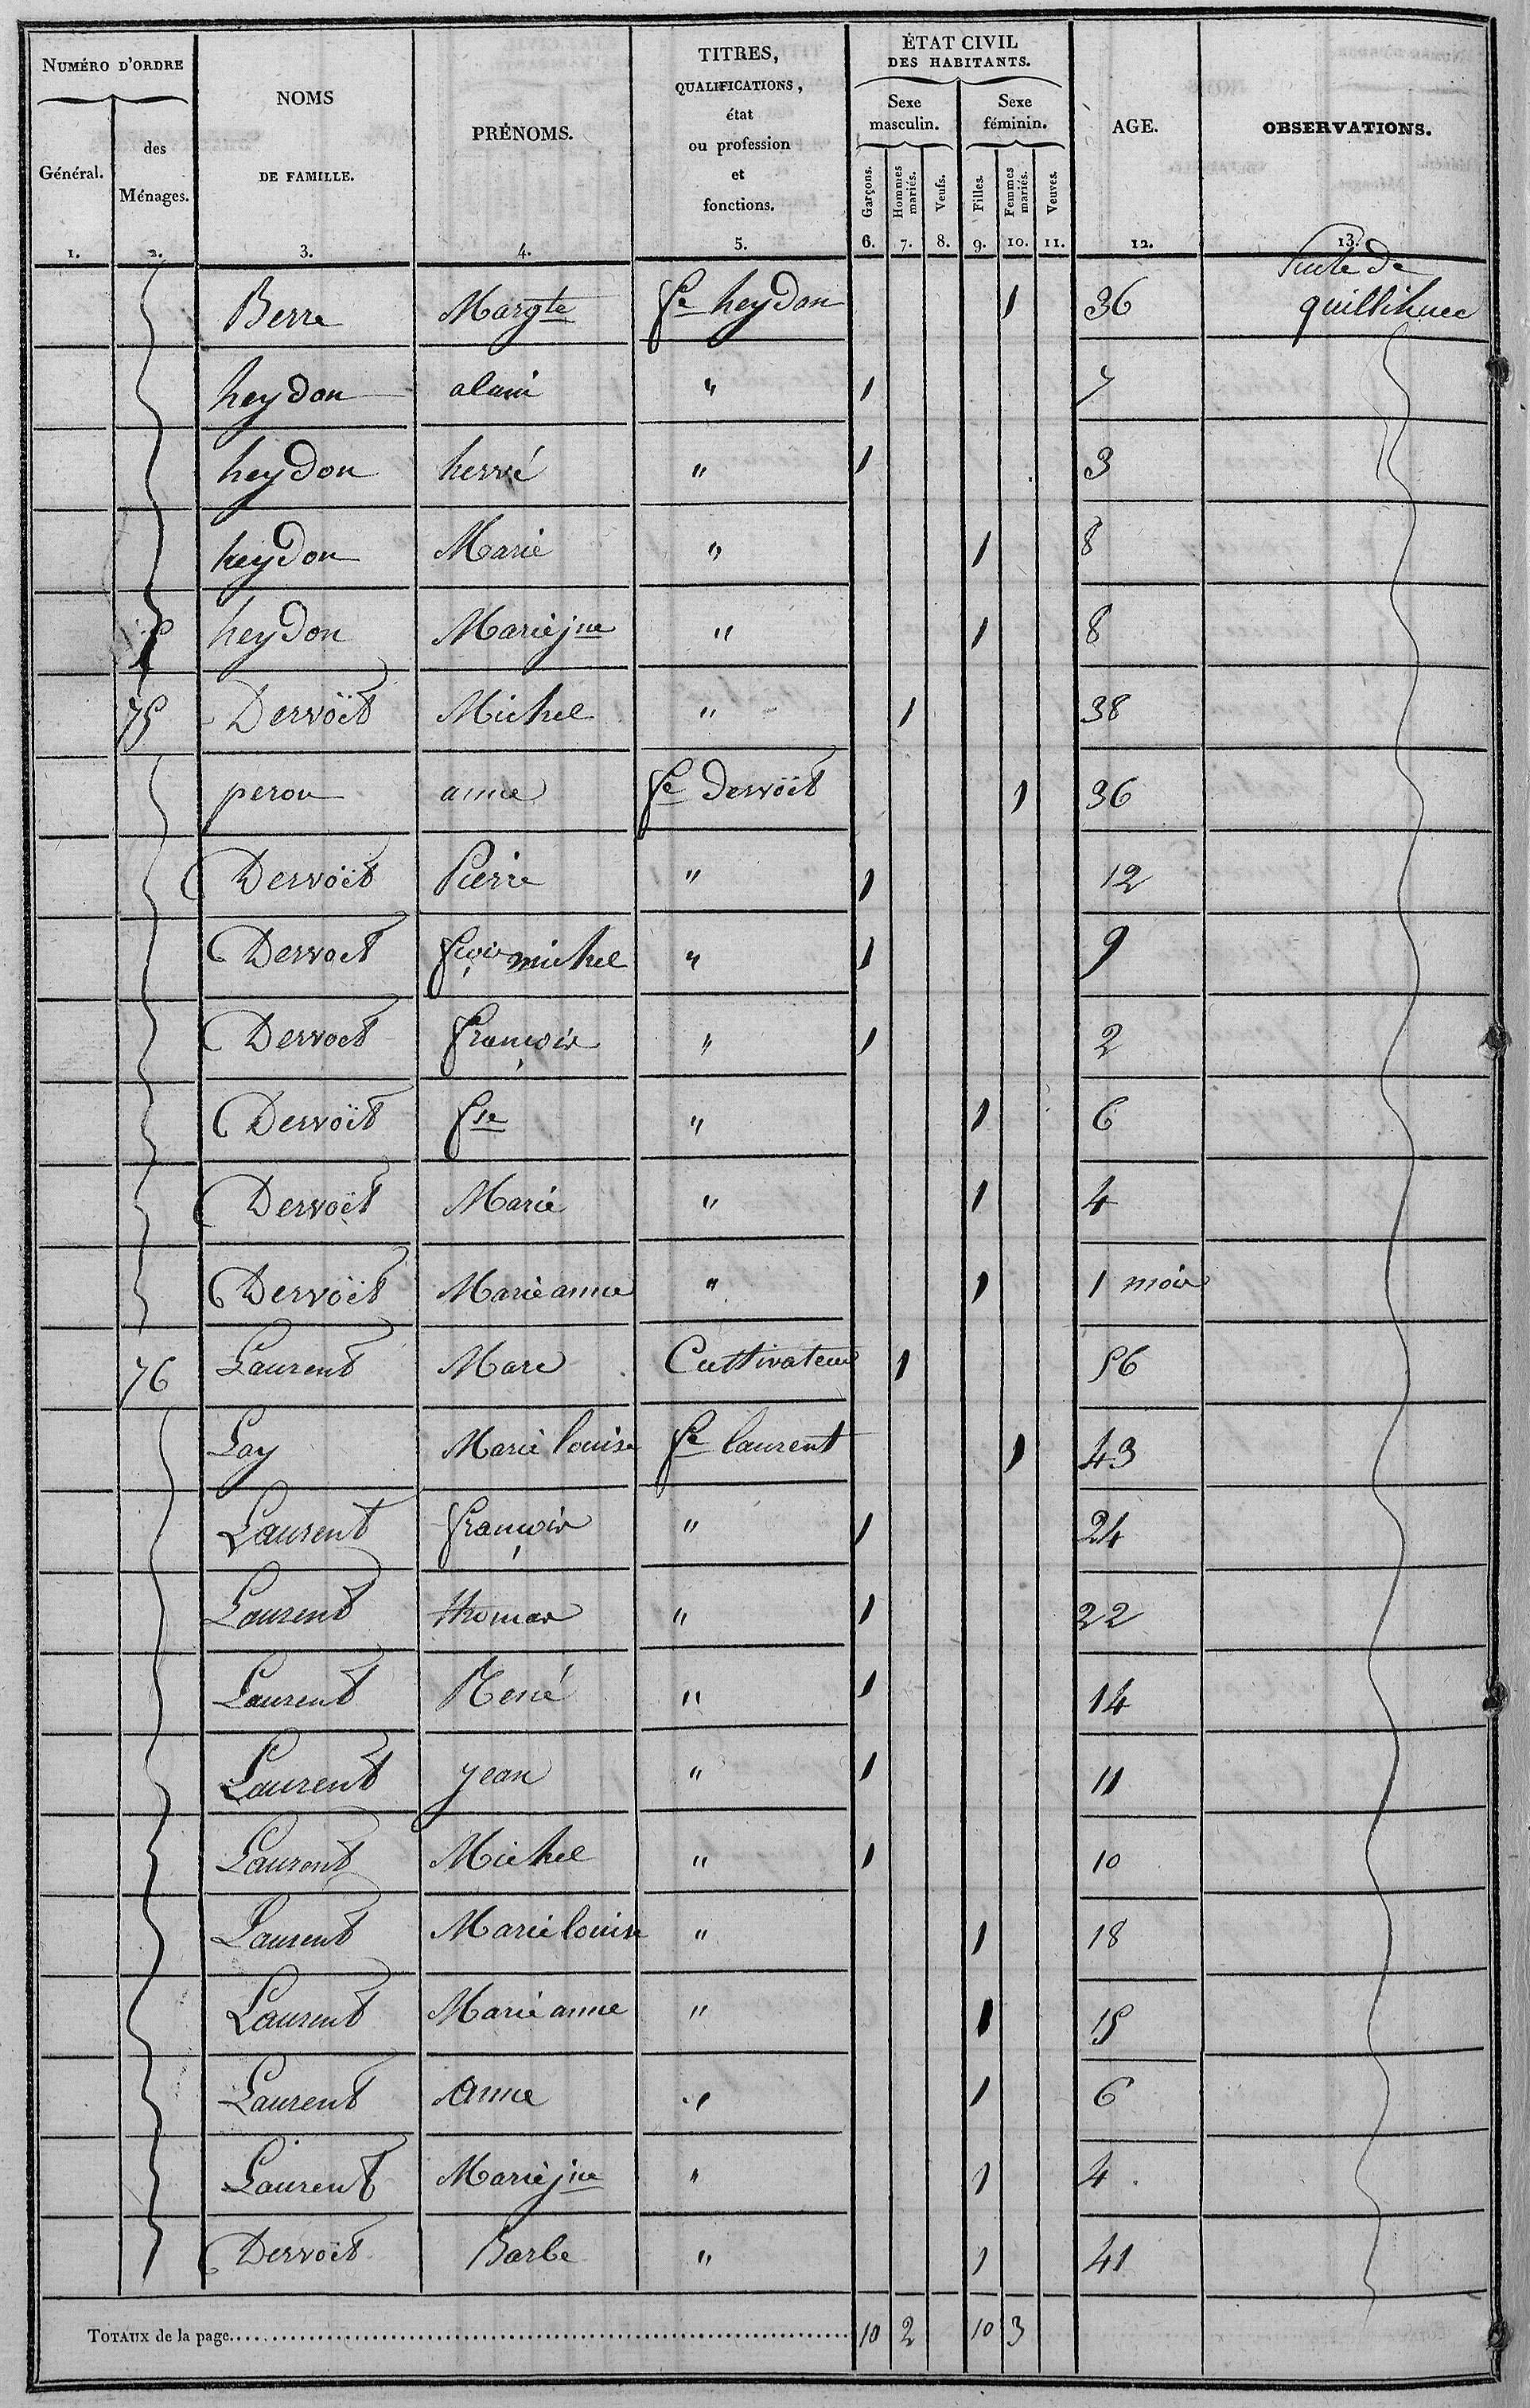 NUMÉRO D'ORDRE
Général.
des Ménages.
NOMS
DE FAMILLE.
PRÉNOMS.
TITRES,
QUALIFICATIONS,
état
ou profession
et
fonctions.
ÉTAT CIVIL
DES HABITANTS.
Sexe masculin.
Sexe féminin.
Garçons.
Hommes mariés.
Veufs.
Filles.
Femmes mariés.
Veuves.
AGE.
OBSERVATIONS.
1. 2. 3. 4. 5. 6. 7. 8. 9. 10. 11. 12. 13.
Suite de
Berre Margte fe heydon 1 36 quillihuec
heydon alain " 1 7
heydon hervé " 1 3
heydon Marie " 1 8
heydon Marie jne " 1 8
75 Dervoët Michel " 1 38
peron anne fe Dervoët 1 36
Dervoët Pierre " 1 12
Dervoet fçois michel " 1 9
Dervoet françois " 1 2
Dervoët fse " 1 6
Dervoët Marie " 1 4
Dervoët Marie anne " 1 1 mois
76 Laurent Marc Cultivateur 1 56
Lay Marie louise fe laurent 1 43
Laurent françois " 1 24
Laurent thomas " 1 22
Laurent René " 1 14
Laurent jean " 1 11
Laurent Michel " 1 10
Laurent Marie louise " 1 18
Laurent Marie anne " 1 15
Laurent Anne " 1 6
Laurent Marie jne " 1 4
Dervoët Barbe " 1 41
TOTAUX de la page 10 2 10 3